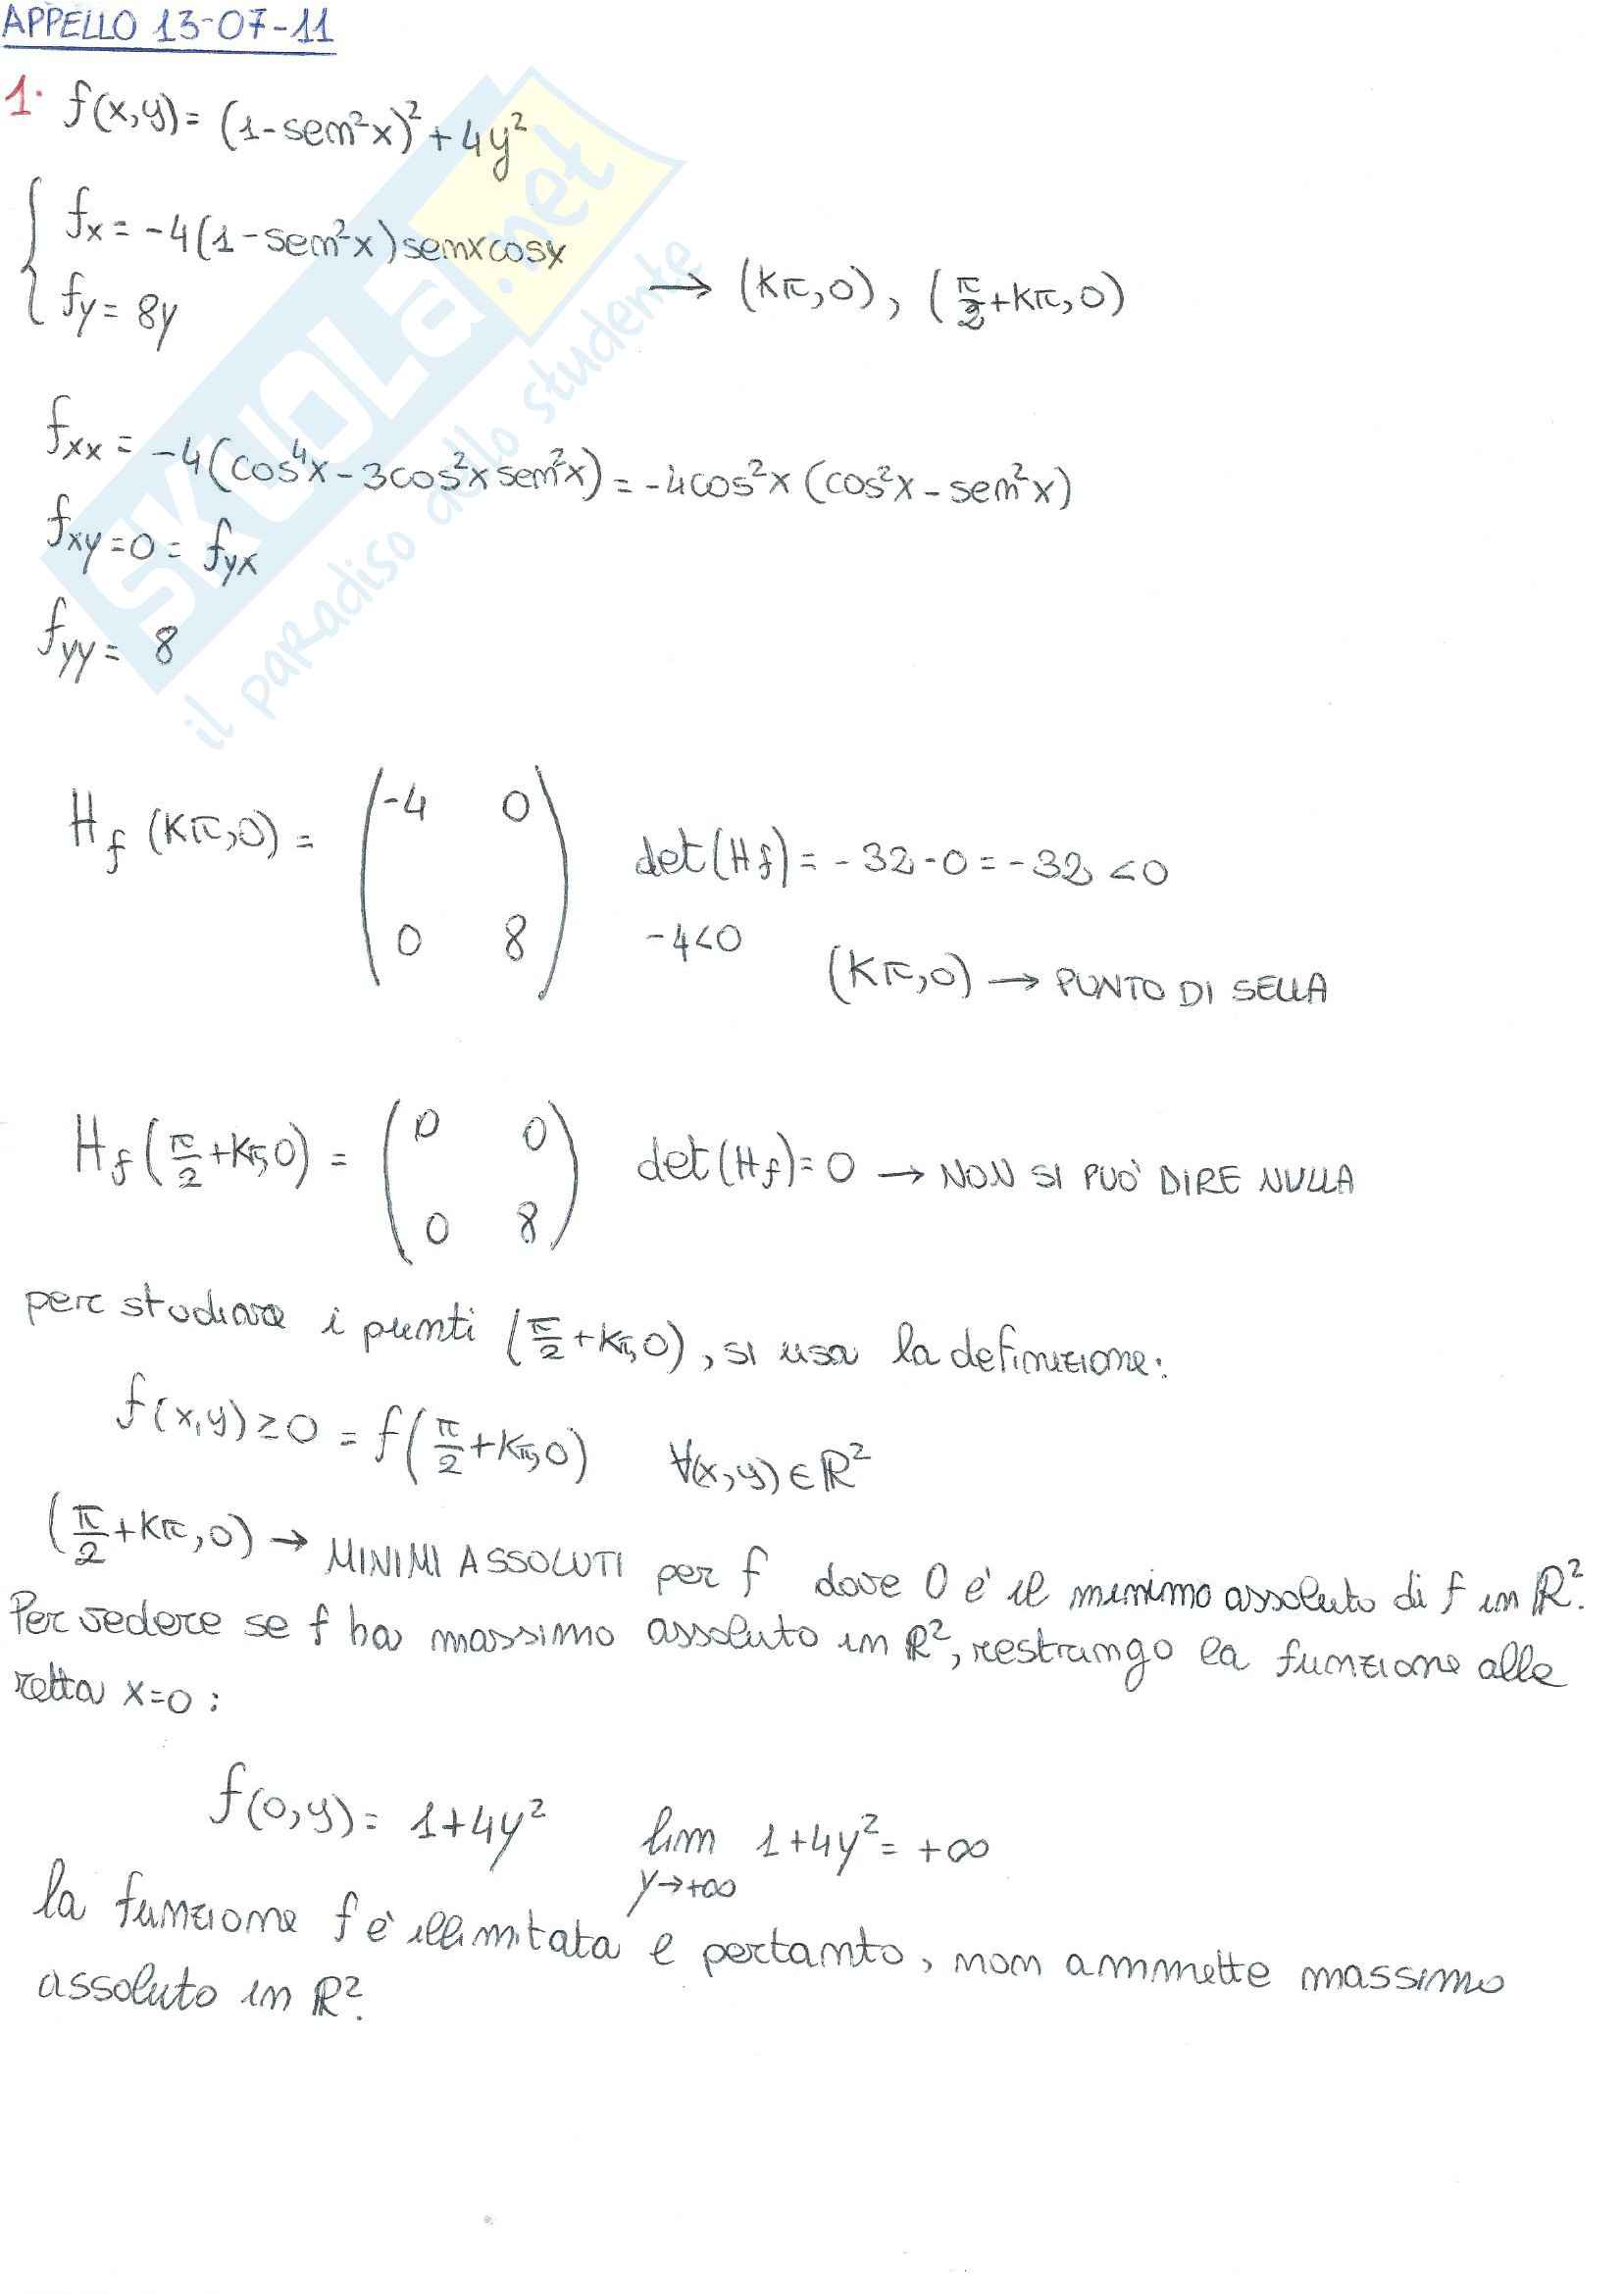 APPELLO 13-07-11
1. f(x,y) = (1-sen²x)² + 4y²
{ fx = -4(1-sen²x)senxcosx
fy = 8y
→ (Kπ,0), (π/2+Kπ,0)
fxx = -4(cos⁴x - 3cos²x sen²x) = -4cos²x (cos²x - sen²x)
fxy = 0 = fyx
fyy = 8
Hf (Kπ,0) = ( -4 0
0 8 )
det(Hf) = -32-0 = -32 <0
-4<0
(Kπ,0) → PUNTO DI SELLA
Hf (π/2+Kπ,0) = ( 0 0
0 8 )
det(Hf) = 0 → NON SI PUÒ DIRE NULLA
per studiare i punti (π/2+Kπ,0), si usa la definizione:
f(x,y) ≥ 0 = f(π/2+Kπ,0) ∀(x,y) ∈ R²
(π/2+Kπ,0) → MINIMI ASSOLUTI per f dove 0 è il minimo assoluto di f in R².
Per vedere se f ha massimo assoluto in R², restringo la funzione alla
retta x=0:
f(0,y) = 1+4y² lim y→+∞ 1+4y² = +∞
la funzione f è illimitata e pertanto, non ammette massimo
assoluto in R².
SKUOLA.net
il paradiso dello studente